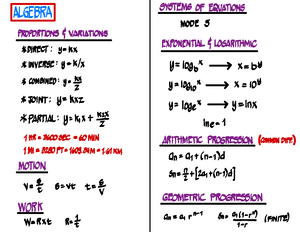 ALGEBRA
PROPORTIONS & VARIATIONS
* DIRECT: y = kx
* INVERSE: y = k/x
* COMBINED: y = kx/z
* JOINT: y = kxz
* PARTIAL: y = k₁x + k₂x/z
1 HR = 3600 SEC = 60 MIN
1 MI = 5280 FT = 1609.34M = 1.61 KM
MOTION
V = S/t S = Vt t = S/V
WORK
W = R x t R = 1/t
SYSTEMS OF EQUATIONS
MODE 5
EXPONENTIAL & LOGARITHMIC
y = log_b x → x = b^y
y = log₁₀ x → x = 10^y
y = log_e x → y = lnx
lne = 1
ARITHMETIC PROGRESSION (COMMON DIFF)
an = a₁ + (n-1)d
Sn = n/2 + [2a₁ + (n-1)d]
GEOMETRIC PROGRESSION
an = a₁ r^n-1 Sn = a₁(1-rⁿ)/1-r (FINITE)